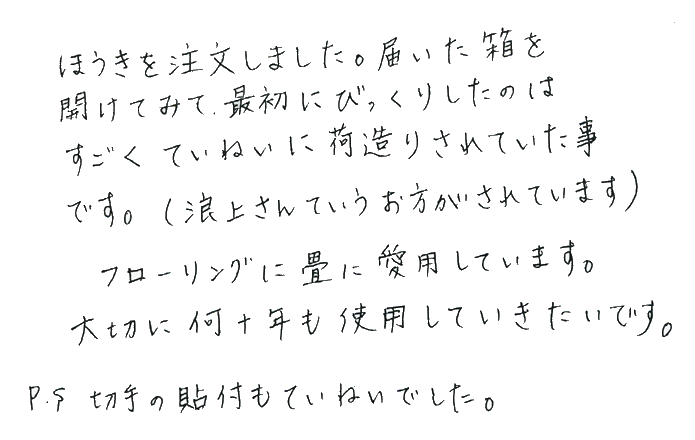 ほうきを注文しました。届いた箱を
開けてみて、最初にびっくりしたのは
すごくていねいに荷造りされていた事
です。(浪上さんていうお方がされています)
フローリングに畳に愛用しています。
大切に何十年も使用していきたいです。
P.S 切手の貼付もていねいでした。